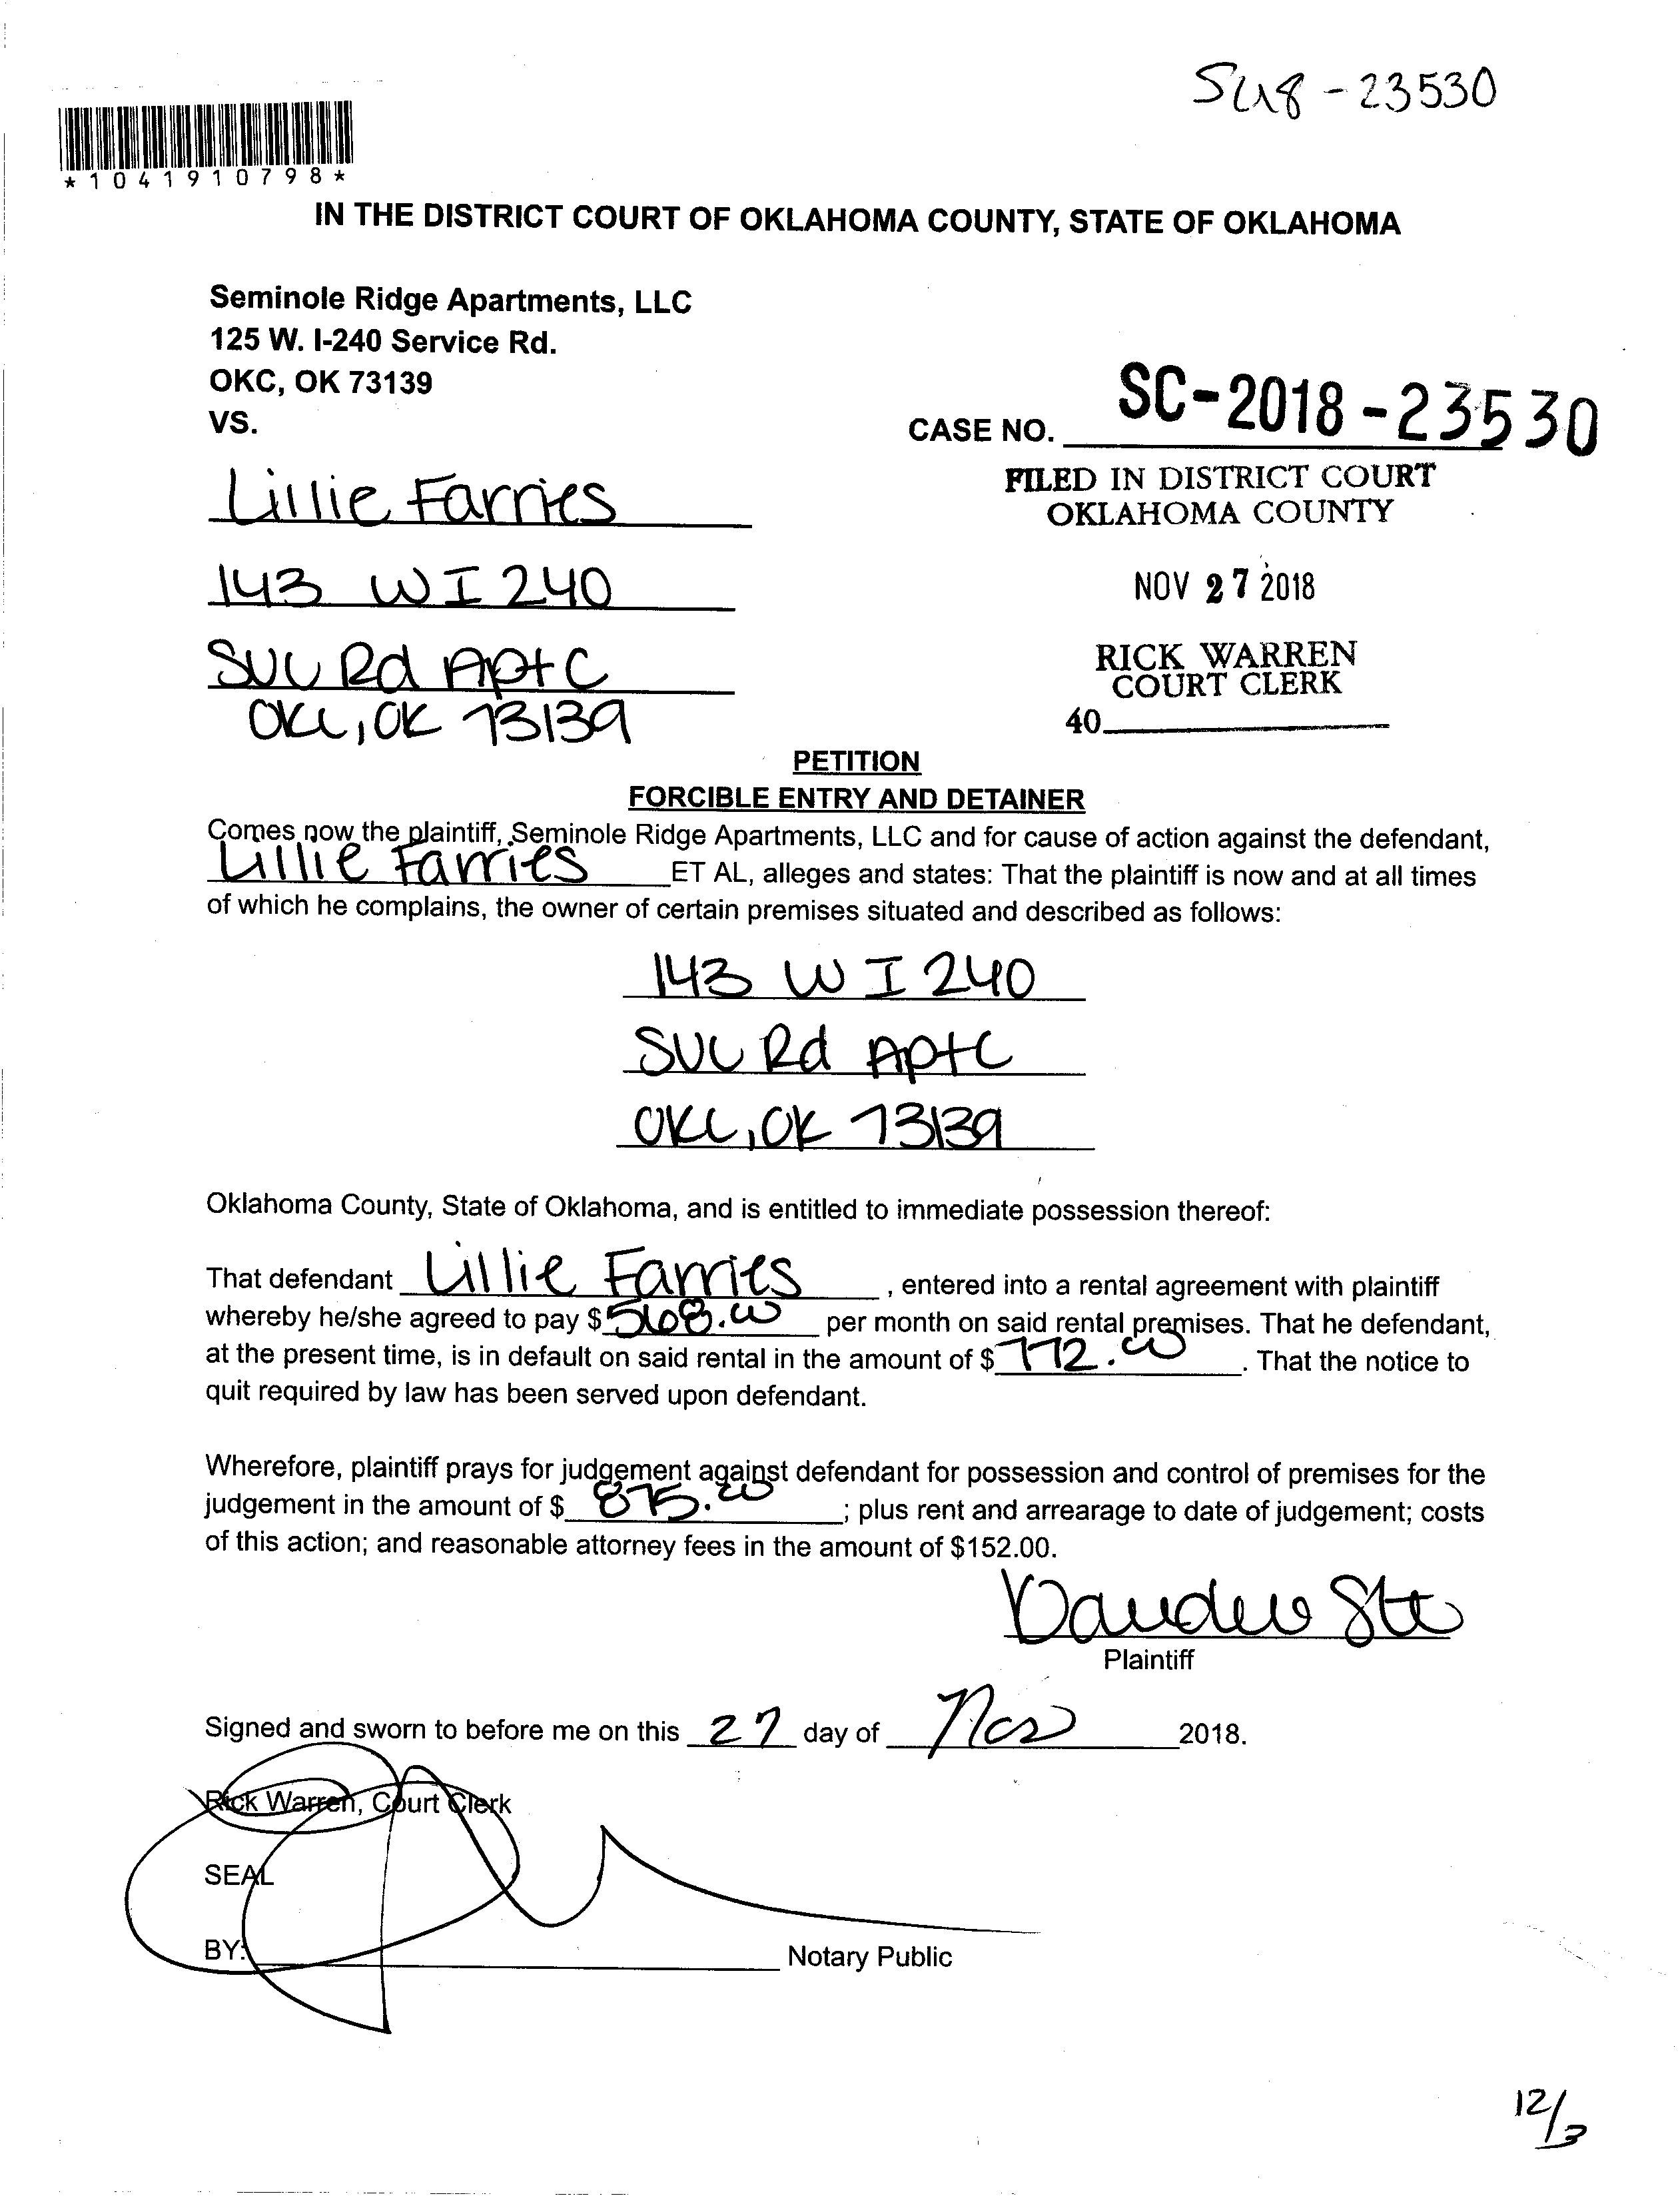 SC18-23530
*1041910798*
IN THE DISTRICT COURT OF OKLAHOMA COUNTY, STATE OF OKLAHOMA
Seminole Ridge Apartments, LLC
125 W. I-240 Service Rd.
OKC, OK 73139
VS.
CASE NO. SC-2018-23530
Lillie Farries
FILED IN DISTRICT COURT
OKLAHOMA COUNTY
143 W I 240
NOV 27 2018
SVC Rd Apt C
RICK WARREN
COURT CLERK
OKC, OK 73139
40
PETITION
FORCIBLE ENTRY AND DETAINER
Comes now the plaintiff, Seminole Ridge Apartments, LLC and for cause of action against the defendant,
Lillie Farries ET AL, alleges and states: That the plaintiff is now and at all times
of which he complains, the owner of certain premises situated and described as follows:
143 W I 240
SVC Rd Apt C
OKC, OK 73139
Oklahoma County, State of Oklahoma, and is entitled to immediate possession thereof:
That defendant Lillie Farries, entered into a rental agreement with plaintiff
whereby he/she agreed to pay $568.00 per month on said rental premises. That he defendant,
at the present time, is in default on said rental in the amount of $772.00. That the notice to
quit required by law has been served upon defendant.
Wherefore, plaintiff prays for judgement against defendant for possession and control of premises for the
judgement in the amount of $875.00; plus rent and arrearage to date of judgement; costs
of this action; and reasonable attorney fees in the amount of $152.00.
Plaintiff
Signed and sworn to before me on this 27 day of Nov 2018.
Rick Warren, Court Clerk
SEAL
BY: Notary Public
12/3